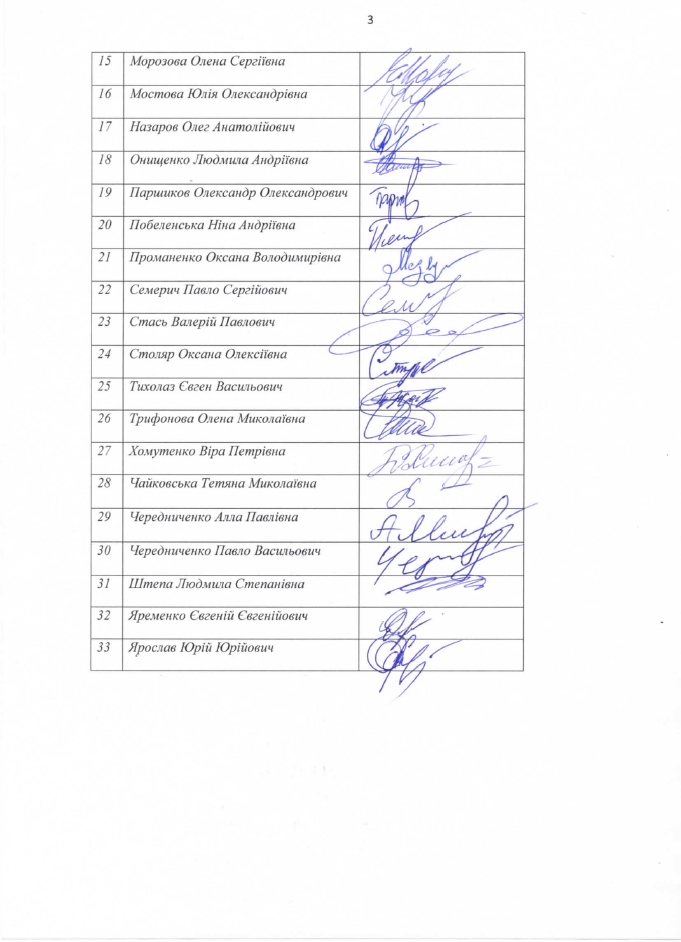 3
15 Морозова Олена Сергіївна
16 Мостова Юлія Олександрівна
17 Назаров Олег Анатолійович
18 Онищенко Людмила Андріївна
19 Паршиков Олександр Олександрович
20 Побеленська Ніна Андріївна
21 Проманенко Оксана Володимирівна
22 Семерич Павло Сергійович
23 Стась Валерій Павлович
24 Столяр Оксана Олексіївна
25 Тихолаз Євген Васильович
26 Трифонова Олена Миколаївна
27 Хомутенко Віра Петрівна
28 Чайковська Тетяна Миколаївна
29 Чередниченко Алла Павлівна
30 Чередниченко Павло Васильович
31 Штепа Людмила Степанівна
32 Яременко Євгеній Євгенійович
33 Ярослав Юрій Юрійович